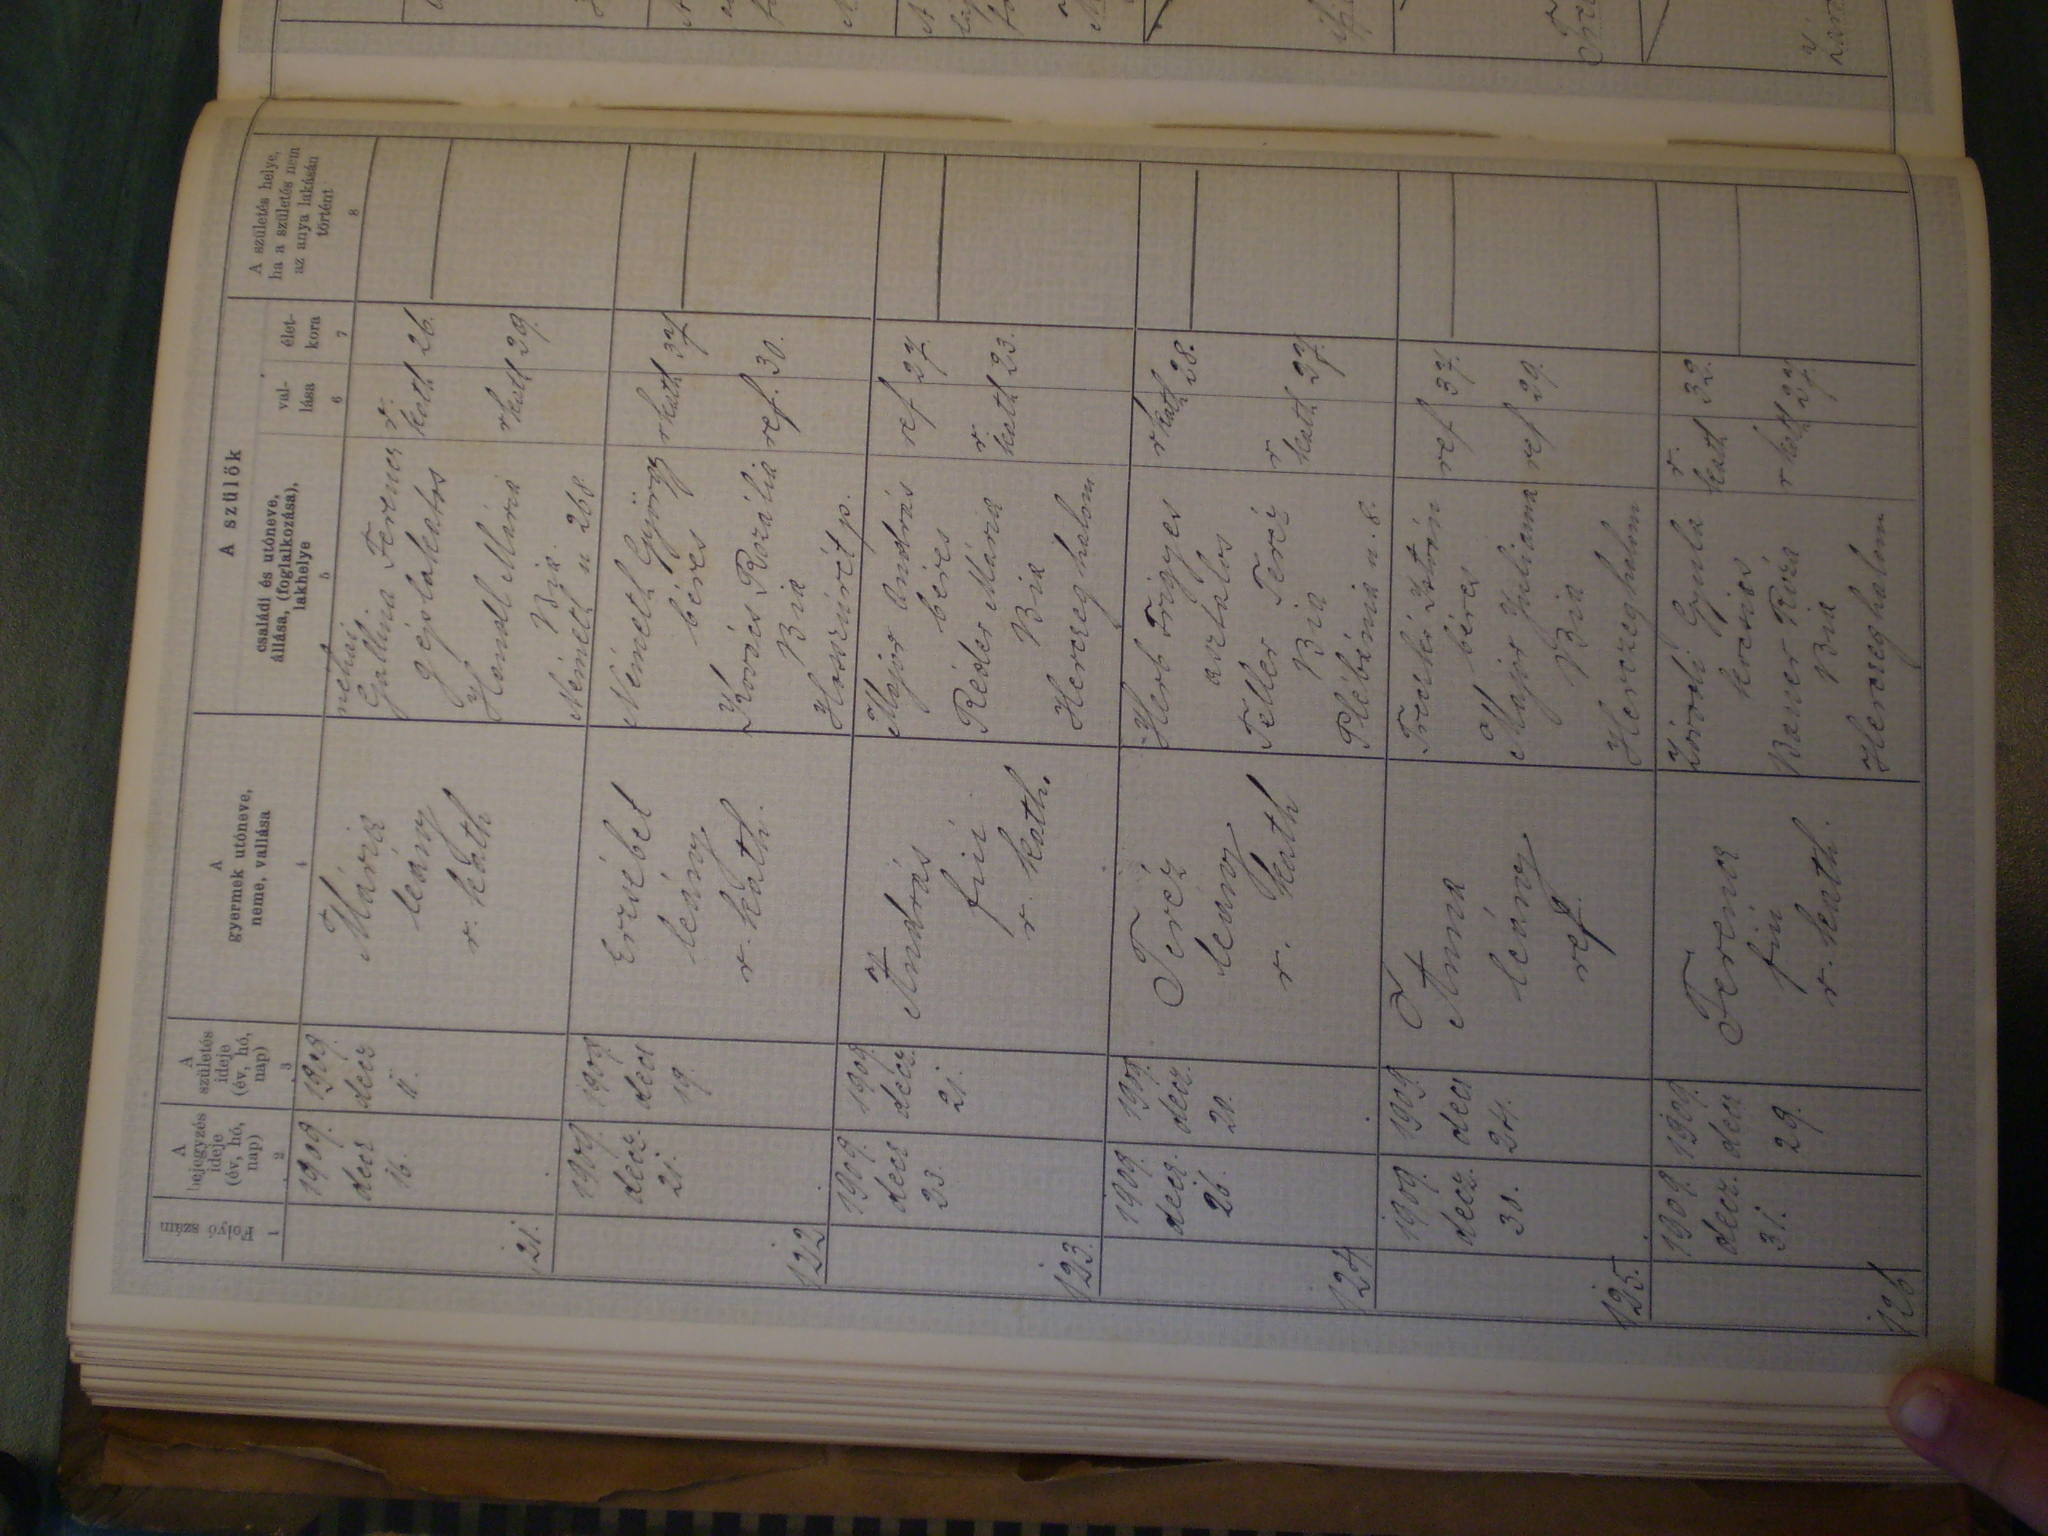 Folyó szám
1
A
bejegyzés
ideje
(év, hó,
nap)
2
A
születés
ideje
(év, hó,
nap)
3
A
gyermek utóneve,
neme, vallása
4
A szülők
családi és utóneve,
állása, (foglalkozása),
lakhelye
5
val-
lása
6
élet-
kora
7
A születés helye,
ha a születés nem
az anya lakásán
történt
8
121.
1909.
decz
16.
1909.
decz
11.
Mária
leány
r. kath
néhai
Gallina Ferencz
géplakatos
Handl Mária
Bia
Németh u 268
r.
kath
26.
rkath
29.
122
1909.
decz.
21.
1909
decz
19.
Erzsébet
leány
r. kath.
Németh György
béres
Kovács Rozália
Bia
Hosszúrét p.
rkath
37
ref.
30.
123.
1909.
decz
23.
1909
decz.
21.
András
fiú
r. kath.
Major András
béres
Réder Mária
Bia
Herczeghalom
ref
27
r
kath
23.
124
1909.
decz.
26.
1909.
decz.
20.
Teréz
leány
r. kath
Herb Frigyes
asztalos
Feller Teréz
Bia
Plébánia u. 8.
rkath
28.
r
kath
27.
125.
1909.
decz.
30.
1909.
decz
24.
Anna
leány
ref.
béres
Major Julianna
Bia
Herczeghalom
ref
37.
ref
29.
126
1909.
decz.
31.
1909.
decz
29.
Ferencz
fiú
r. kath.
Gyula
kocsis
Róza
Bia
Herczeghalom
r.
kath
32.
rkath
27.